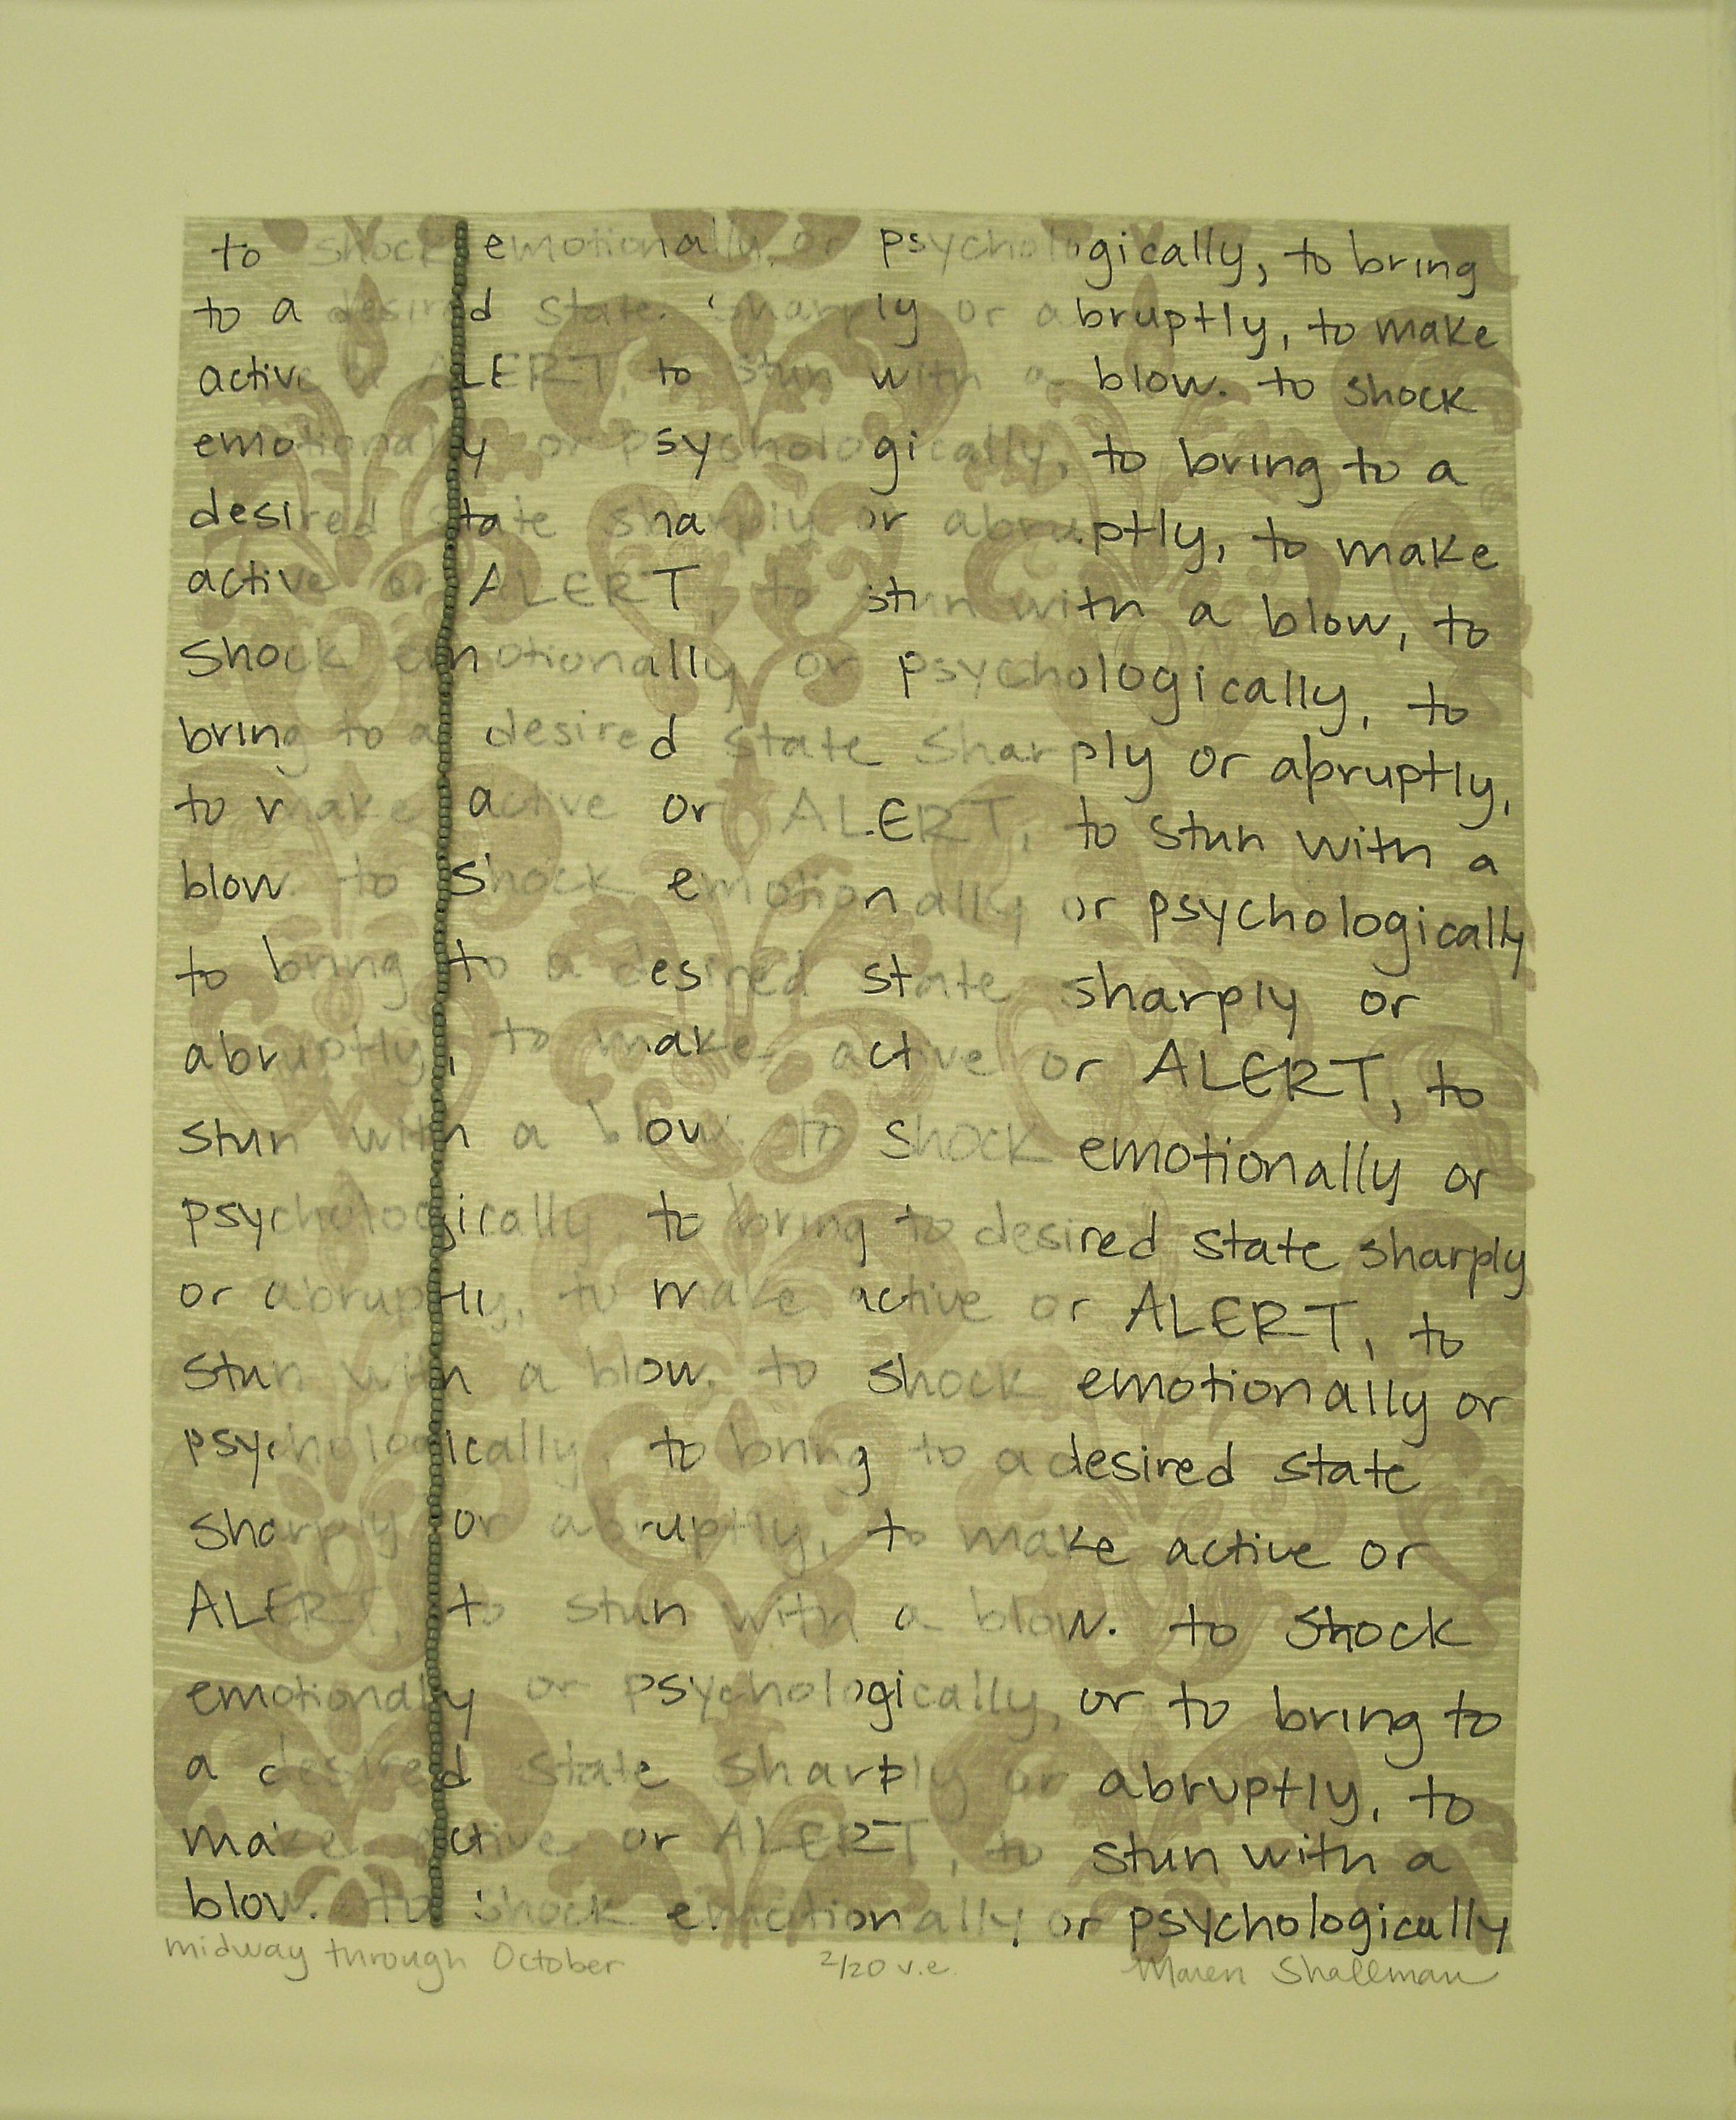 to shock emotionally or psychologically, to bring
to a desired state sharply or abruptly, to make
active or ALERT, to stun with a blow. to shock
emotionally or psychologically, to bring to a
desired state sharply or abruptly, to make
active or ALERT, to stun with a blow, to
shock emotionally or psychologically, to
bring to a desired state sharply or abruptly,
to make active or ALERT, to stun with a
blow. to shock emotionally or psychologically
to bring to a desired state sharply or
abruptly, to make active or ALERT, to
stun with a blow. to shock emotionally or
psychologically to bring to desired state sharply
or abruptly, to make active or ALERT, to
stun with a blow. to shock emotionally or
psychologically, to bring to a desired state
sharply or abruptly, to make active or
ALERT, to stun with a blow. to shock
emotionally or psychologically, or to bring to
a desired state sharply or abruptly, to
make active or ALERT, to stun with a
blow. to shock emotionally or psychologically
midway through October 2/20 v.e. Maren Shallman